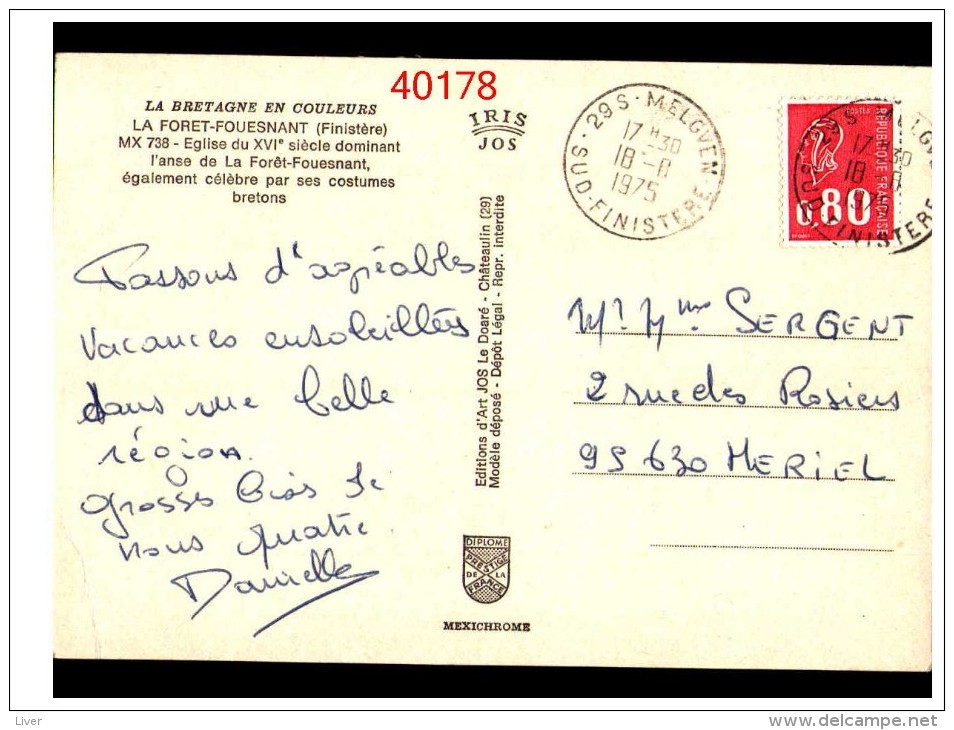 40178
LA BRETAGNE EN COULEURS
LA FORET-FOUESNANT (Finistère)
MX 738 - Eglise du XVIᵉ siècle dominant
l'anse de La Forêt-Fouesnant,
également célèbre par ses costumes
bretons
IRIS
JOS
29 S - MELGVEN
17 H 30
18 - 8
1975
SUD-FINISTERE
POSTES
REPUBLIQUE FRANÇAISE
0.80
17 H 30
18 - 8
1975
FINISTERE
Passons d'agréables
vacances ensoleillées
dans une belle
région.
Grosses bises de
nous quatre.
Danielle
Editions d'Art JOS Le Doaré - Châteaulin (29)
Modèle déposé - Dépôt Légal - Repr. interdite
Mr Mme SERGENT
2 rue des Rosiers
95 630 MERIEL
DIPLOME
PRESTIGE
DE LA
FRANCE
MEXICHROME
Liver
delcampe.net